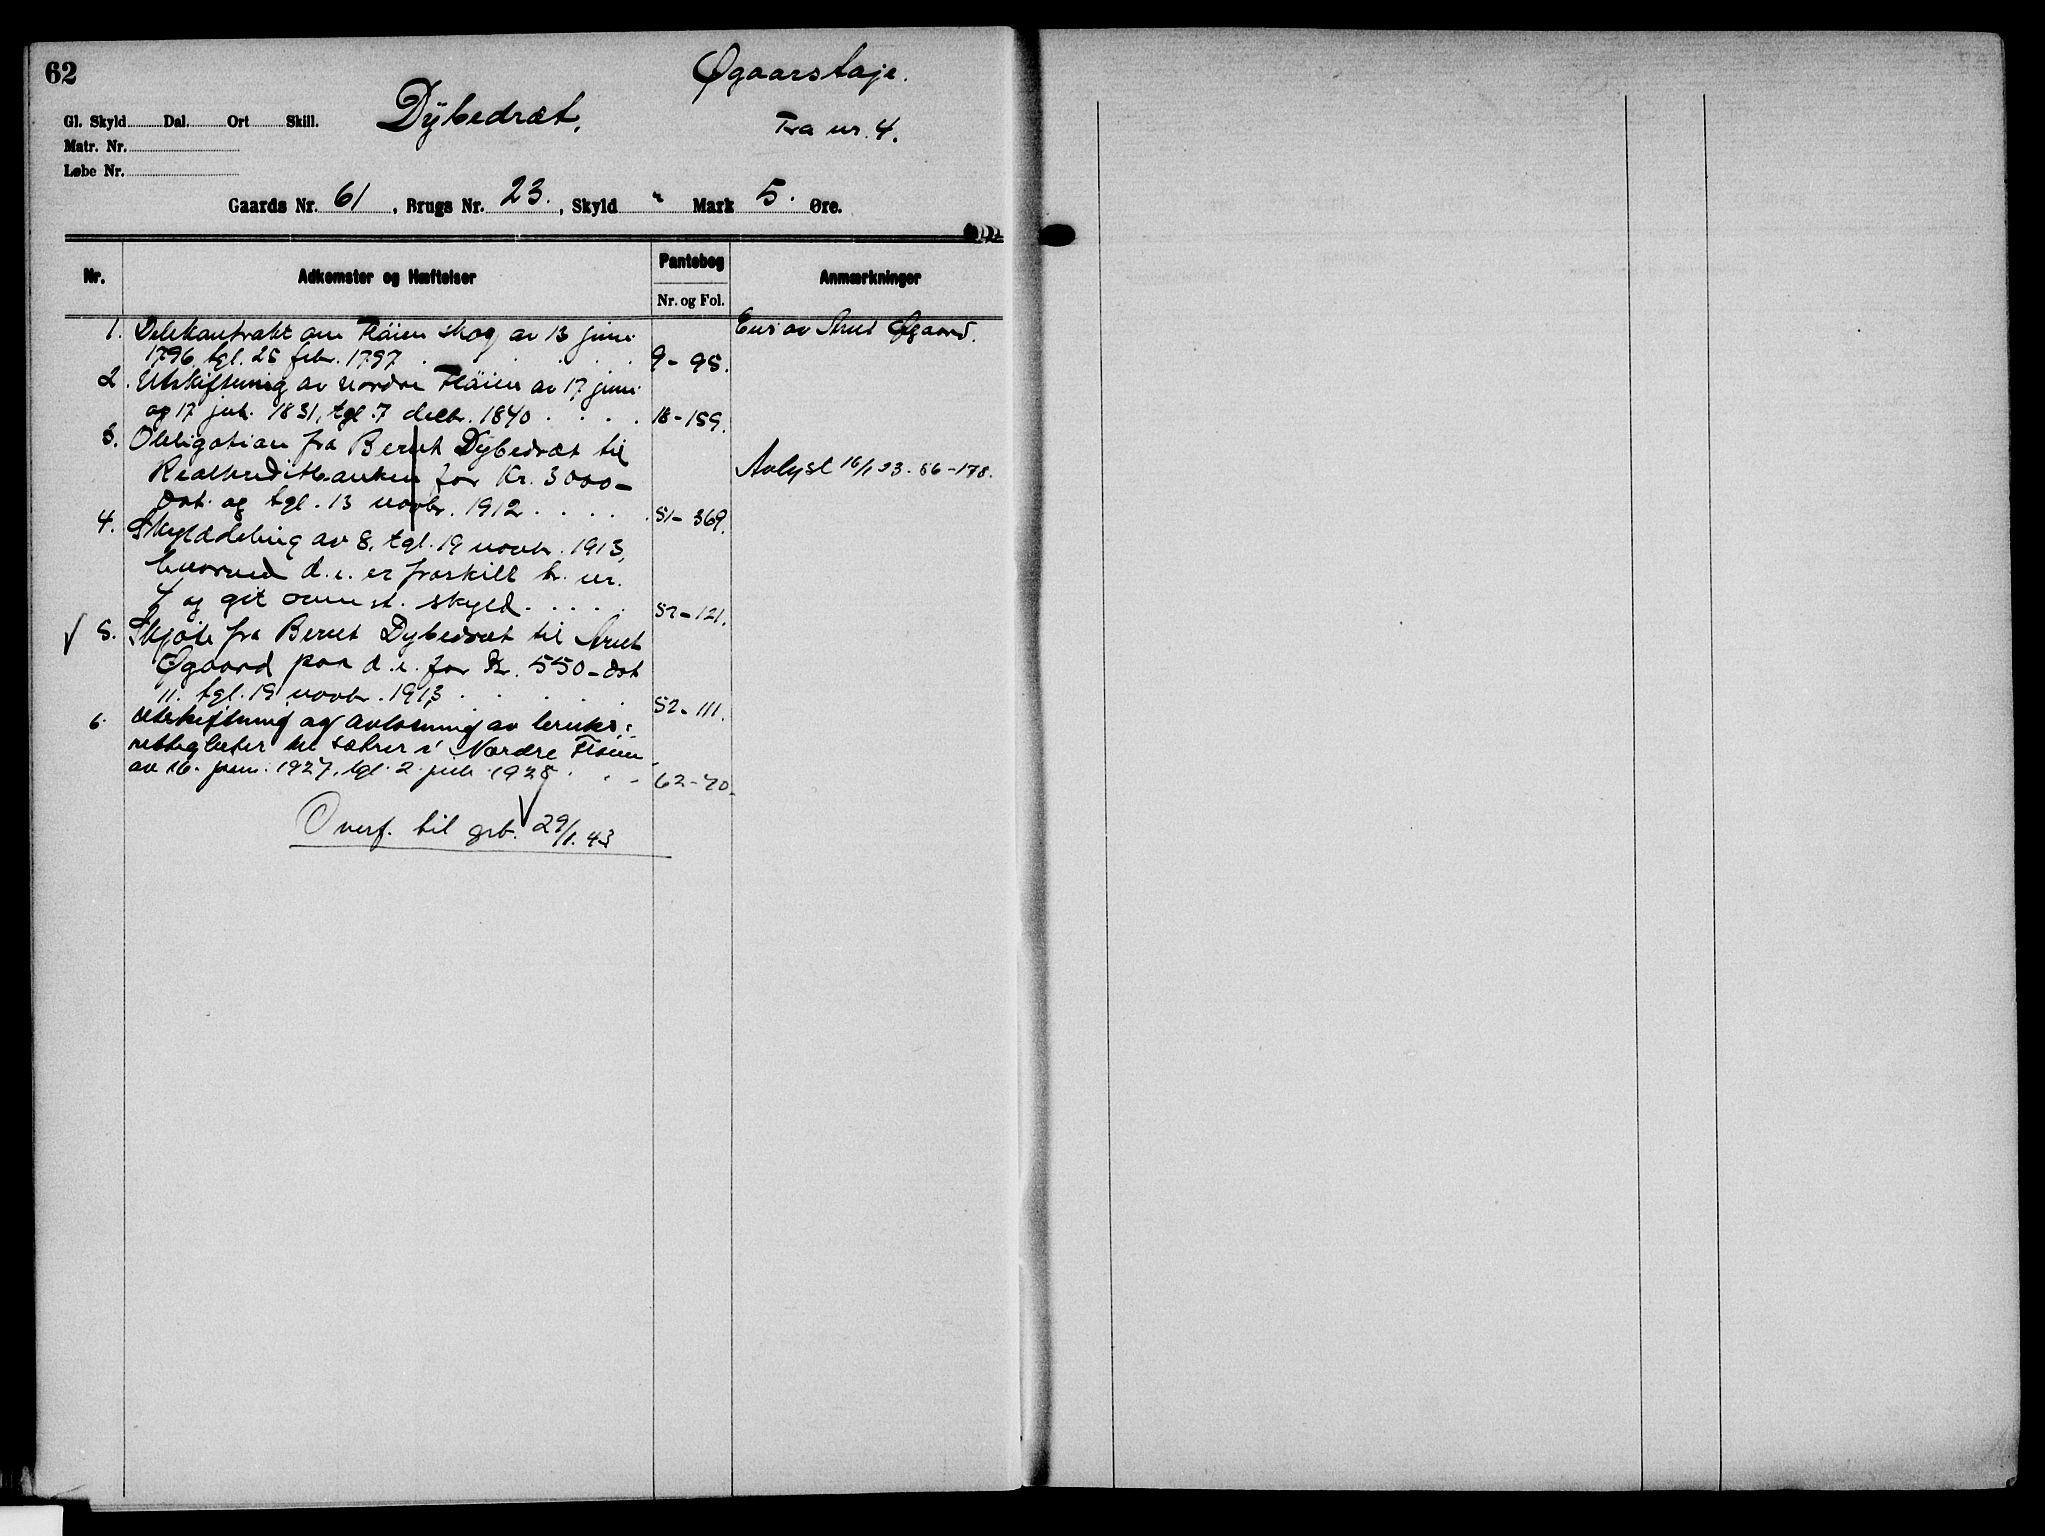 62
Øgaarsteje.
Dÿbedræt.
Fra nr. 4.
Gl. Skyld Dal. Ort Skill.
Matr. Nr.
Løbe Nr.
Gaards Nr. 61, Brugs Nr. 23., Skyld " Mark 5. Øre.
Nr. Adkomster og Hæftelser Pantebog Nr. og Fol. Anmærkninger
1. Delekontrakt om Fløien skog av 13 juni Eies av Arut Øgaard.
1796, tgl. 25 febr. 1797 . . . . . 9 - 95.
2. Utskiftning av nordre Fløien av 17 juni
og 17 juli 1831, tgl. 7 decbr. 1840 . . . . 18 - 159.
3. Obligation fra Berut Dybedræt til
Realkreditbanken for Kr. 3000 - Avlyst 16/1 23. 56 - 178.
dat. og tgl. 13 novbr. 1912 . . . . . 51 - 369.
4. Skylddeling av 8, tgl. 19 novbr. 1913,
hvorved d. e. er fraskilt br. nr.
4 og git ovenst. skyld . . . . . 52 - 121.
5. Skjøte fra Berut Dybedræt til Arut
Øgaard paa d. e. for Kr. 550 - dat
11. tgl. 19 novbr. 1913 . . . . 52 - 111.
6. Utskiftning og avløsning av bruks-
rettigheter til sætrer i Nordre Fløien
av 16. juni 1927, tgl. 2. juli 1928 . . - 62 - 70.
Overf. til grb. 29/1. 43